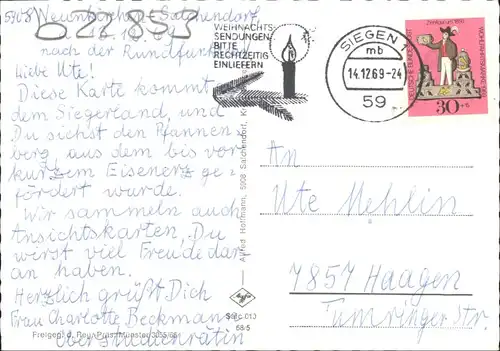 5908 Neunkirchen-Salchendorf,
14.12.1969
nach der Rundfunk
Liebe Ute!
Diese Karte kommt
dem Siegerland, und
Du siehst den Pfannen-
berg, aus dem bis vor
kurzem Eisenerz ge-
fördert wurde.
Wir sammeln auch
Ansichtskarten, Du
wirst viel Freude dar-
an haben.
Herzlich grüßt Dich
Frau Charlotte Beckmann
Oberstudienrätin
022853
WEIHNACHTS-
SENDUNGEN
BITTE
RECHTZEITIG
EINLIEFERN
SIEGEN 1
mb
14.12.69-24
59
Zinnfiguren
DEUTSCHE BUNDESPOST
WOHLFAHRTSMARKE 1969
30
An
Ute Mehlin
7857 Haagen
Tumringer Str.
Alfred Hoffmann, 5908 Salchendorf,
Agfa
S 9c 013
68/5
Freigeg. d. Reg. Präs. Münster